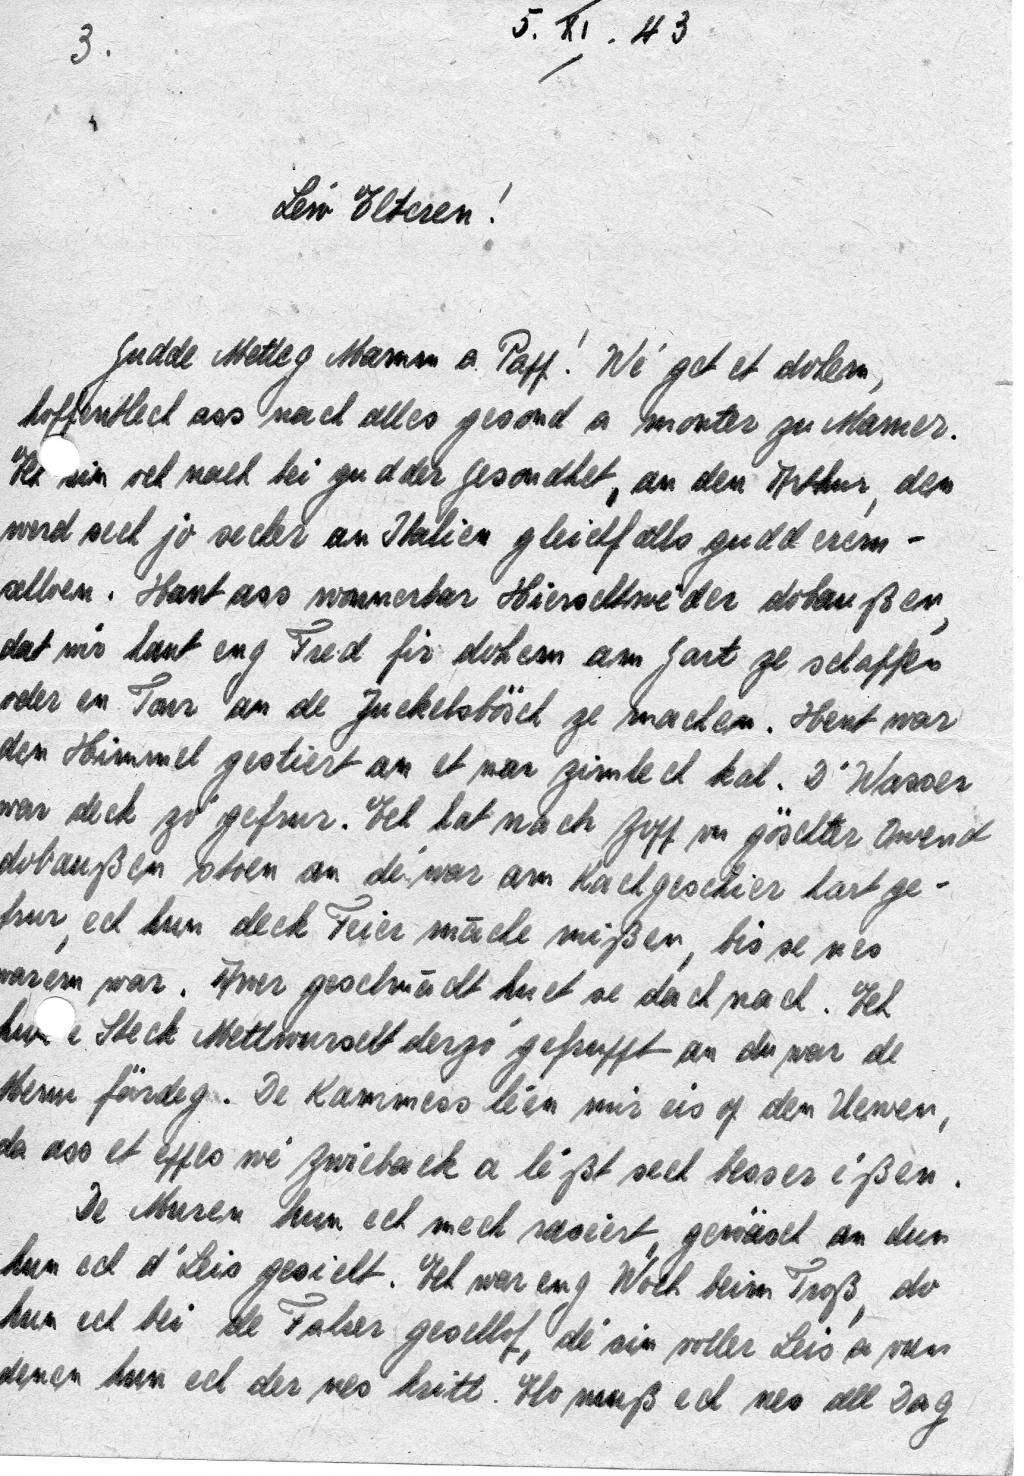 3.
5. XI. 43
Léiw Elteren!
Gudde Metteg Mamm a Papp! Wé get et dohem,
hoffentlech ass nach alles gesond a monter zu Mamer.
Ech sin och nach bei gudder Gesondhet, an den Arthur, den
werd sech jo secher an Italien gleichfalls gudd erem-
selwen. Haut ass wonnerbar Hierschtwé'der dobaußen,
dat wir haut eng Fred fir dohem am Gart ze schaffen
oder en Tour an de Juckelsbösch ze machen. Hent war
den Himmel gestiert an et war zimlech kal. D'Wasser
war deck zó gefrur. Ech hat nach Zopp vu göschter Owend
dobaußen stoen an dé war am Kachgeschier hart ge-
frur, ech hun deck Feier mache mißen, bis se nes
warem war. Awer geschmācht huet se dach nach. Ech
hun e Steck Mettwurscht derzó gefrupft an du war de
Menu färdeg. De Kammess léen mir eis op den Uewen,
da ass et eppes wé Zwieback a lé'ßt sech besser i'ßen.
De Muren hun ech mech raséiert, gewäsch an dun
hun ech d'Leis gesicht. Ech war eng Woch beim Troß, do
hun ech bei de Fahrer geschlof, dé sin voller Leis a vun
denen hun ech der nes kritt. Elo muß ech nes all Dag